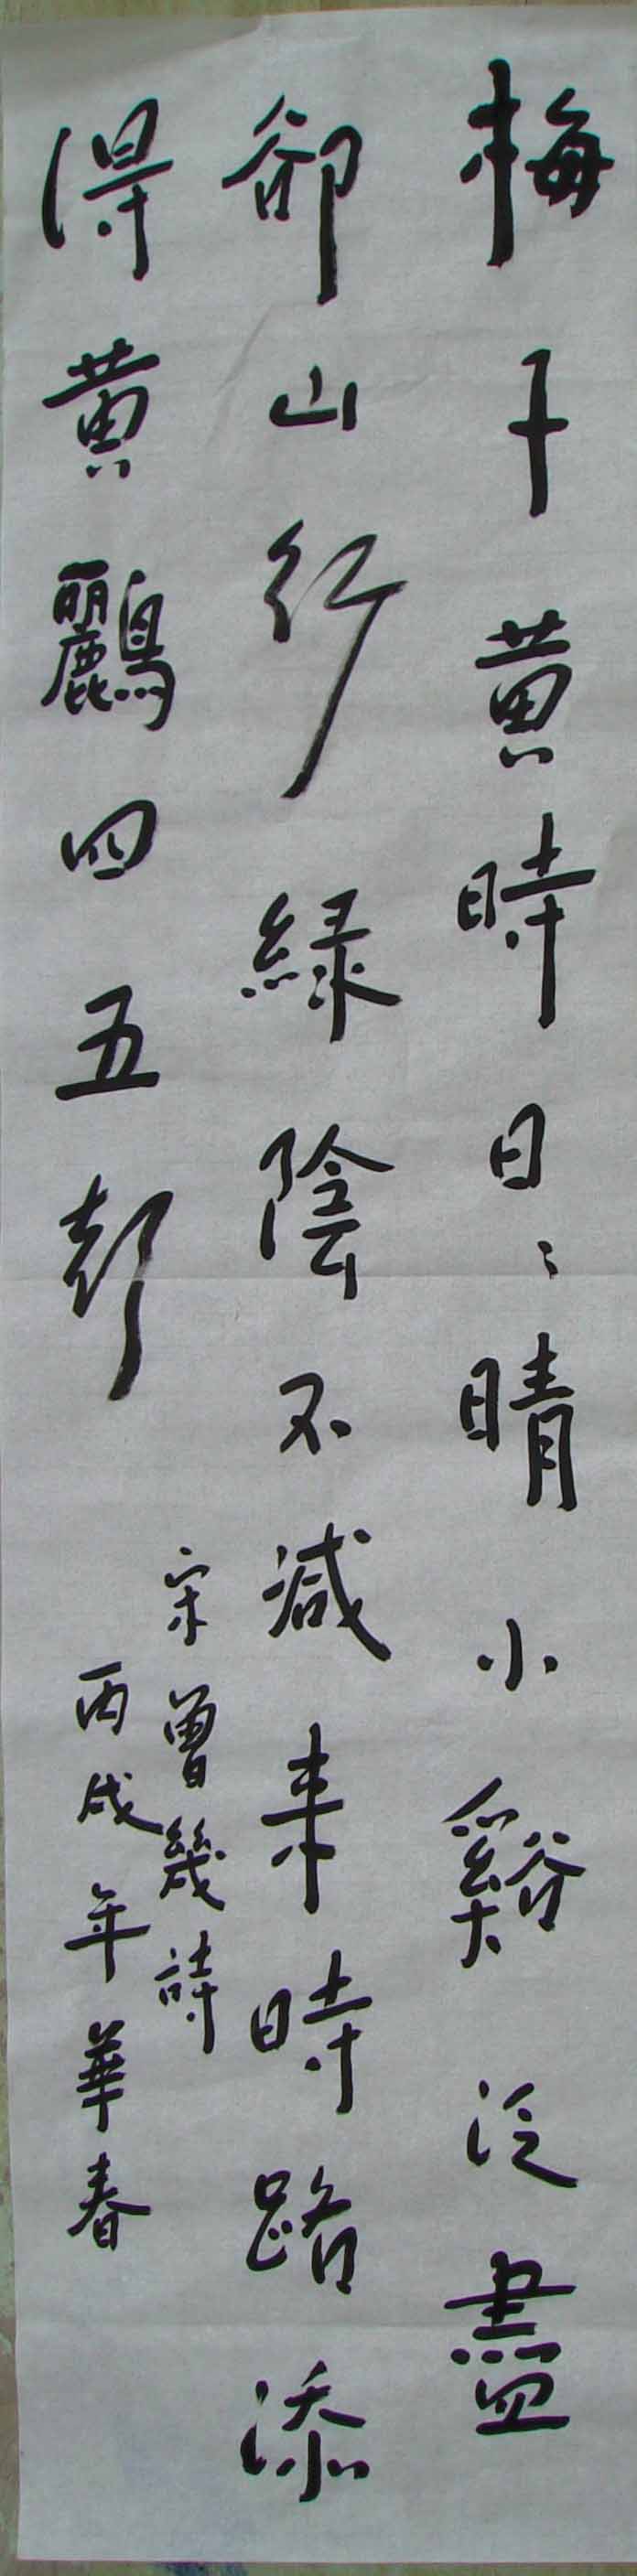 梅子黄時日〻晴小谿泛盡
卻山行綠陰不減来時路添
得黄鸝四五聲
宋曾幾詩
丙戌年華春